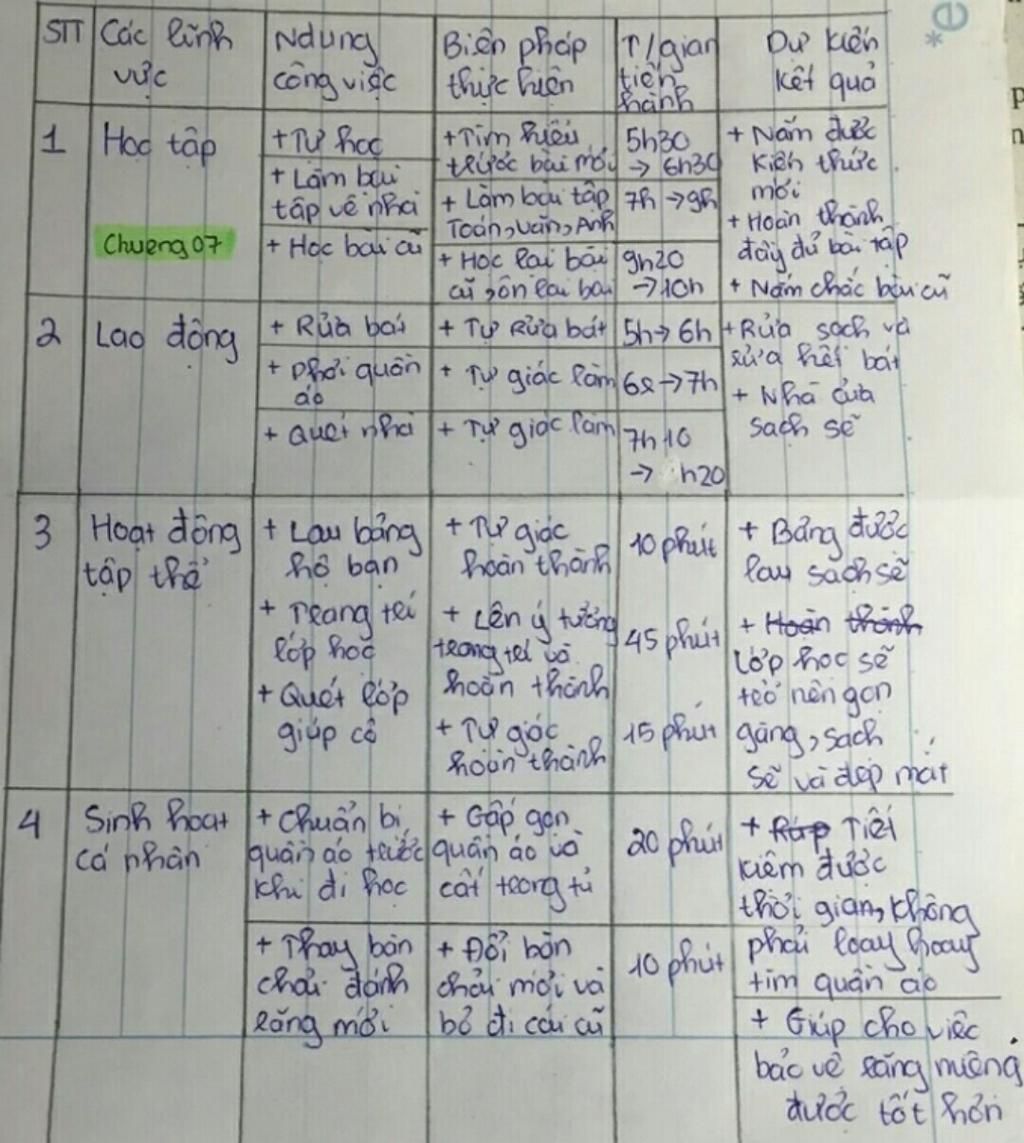 *e
STT Các lĩnh vực Ndung công việc Biện pháp thực hiện T/gian tiến hành Dự kiến kết quả
1 Học tập
Chương 07
+ Tự học
+ Làm bài
tập về nhà
+ Học bài cũ
+ Tìm hiểu
trước bài mới
+ Làm bài tập
Toán, văn, Anh
+ Học lại bài
cũ, ôn lại bài
5h30
→ 6h30
7h → 9h
9h20
→ 10h
+ Nắm được
kiến thức
mới
+ Hoàn thành
đầy đủ bài tập
+ Nắm chắc bài cũ
2 Lao động
+ Rửa bát
+ phơi quần
áo
+ Quét nhà
+ Tự Rửa bát
+ Tự giác làm
+ Tự giác làm
5h → 6h
→ 7h
7h10
→ h20
+ Rửa sạch và
rửa hết bát
+ Nhà cửa
sạch sẽ
3 Hoạt động
tập thể
+ Lau bảng
hộ bạn
+ Trang trí
lớp học
+ Quét lớp
giúp cô
+ Tự giác
hoàn thành
+ Lên ý tưởng
trang trí và
hoàn thành
+ Tự giác
hoàn thành
10 phút
45 phút
15 phút
+ Bảng được
lau sạch sẽ
+ Hoàn thành
Lớp học sẽ
trở nên gọn
gàng, sạch
sẽ và đẹp mắt
4 Sinh hoạt
cá nhân
+ Chuẩn bị
quần áo trước
khi đi học
+ Thay bàn
chải đánh
răng mới
+ Gấp gọn
quần áo và
cất trong tủ
+ Đổi bàn
chải mới và
bỏ đi cái cũ
20 phút
10 phút
+ Tiết
kiệm được
thời gian, không
phải loay hoay
tìm quần áo
+ Giúp cho việc
bảo vệ răng miệng
được tốt hơn